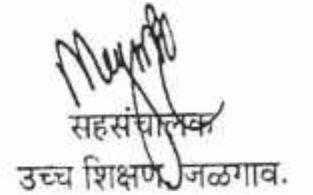 सहसंचालक
उच्च शिक्षण, जळगाव.